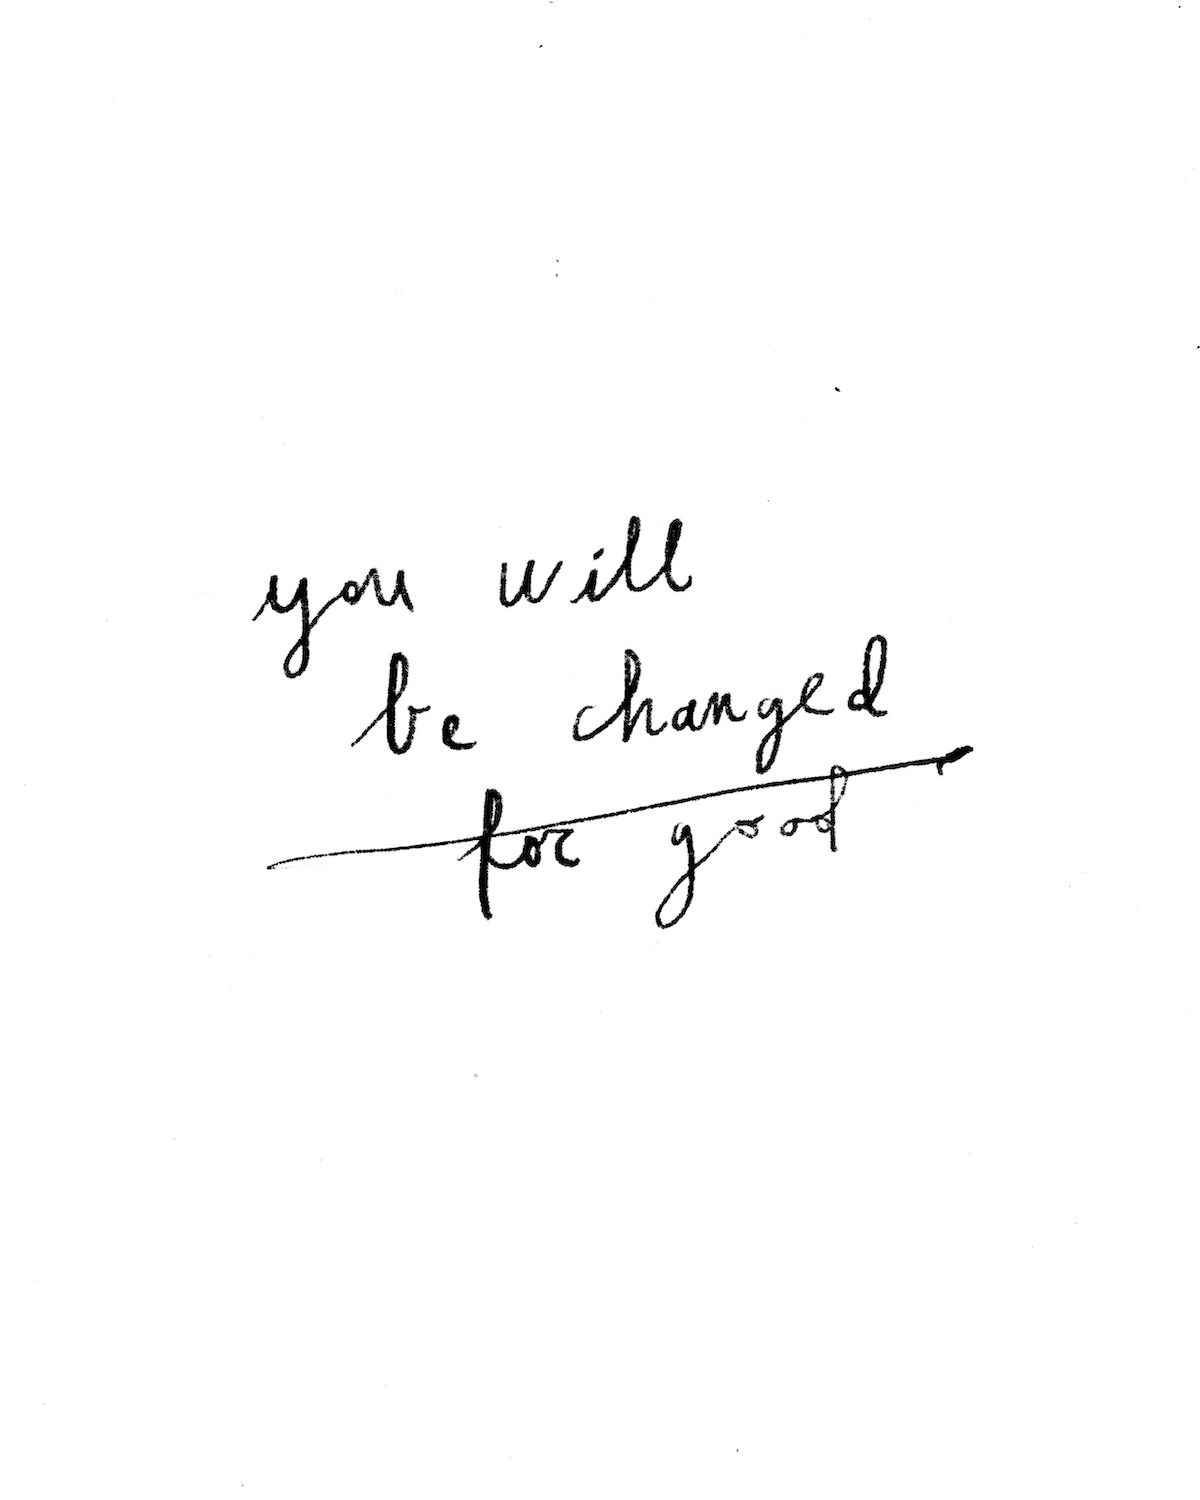 you will
be changed
for good